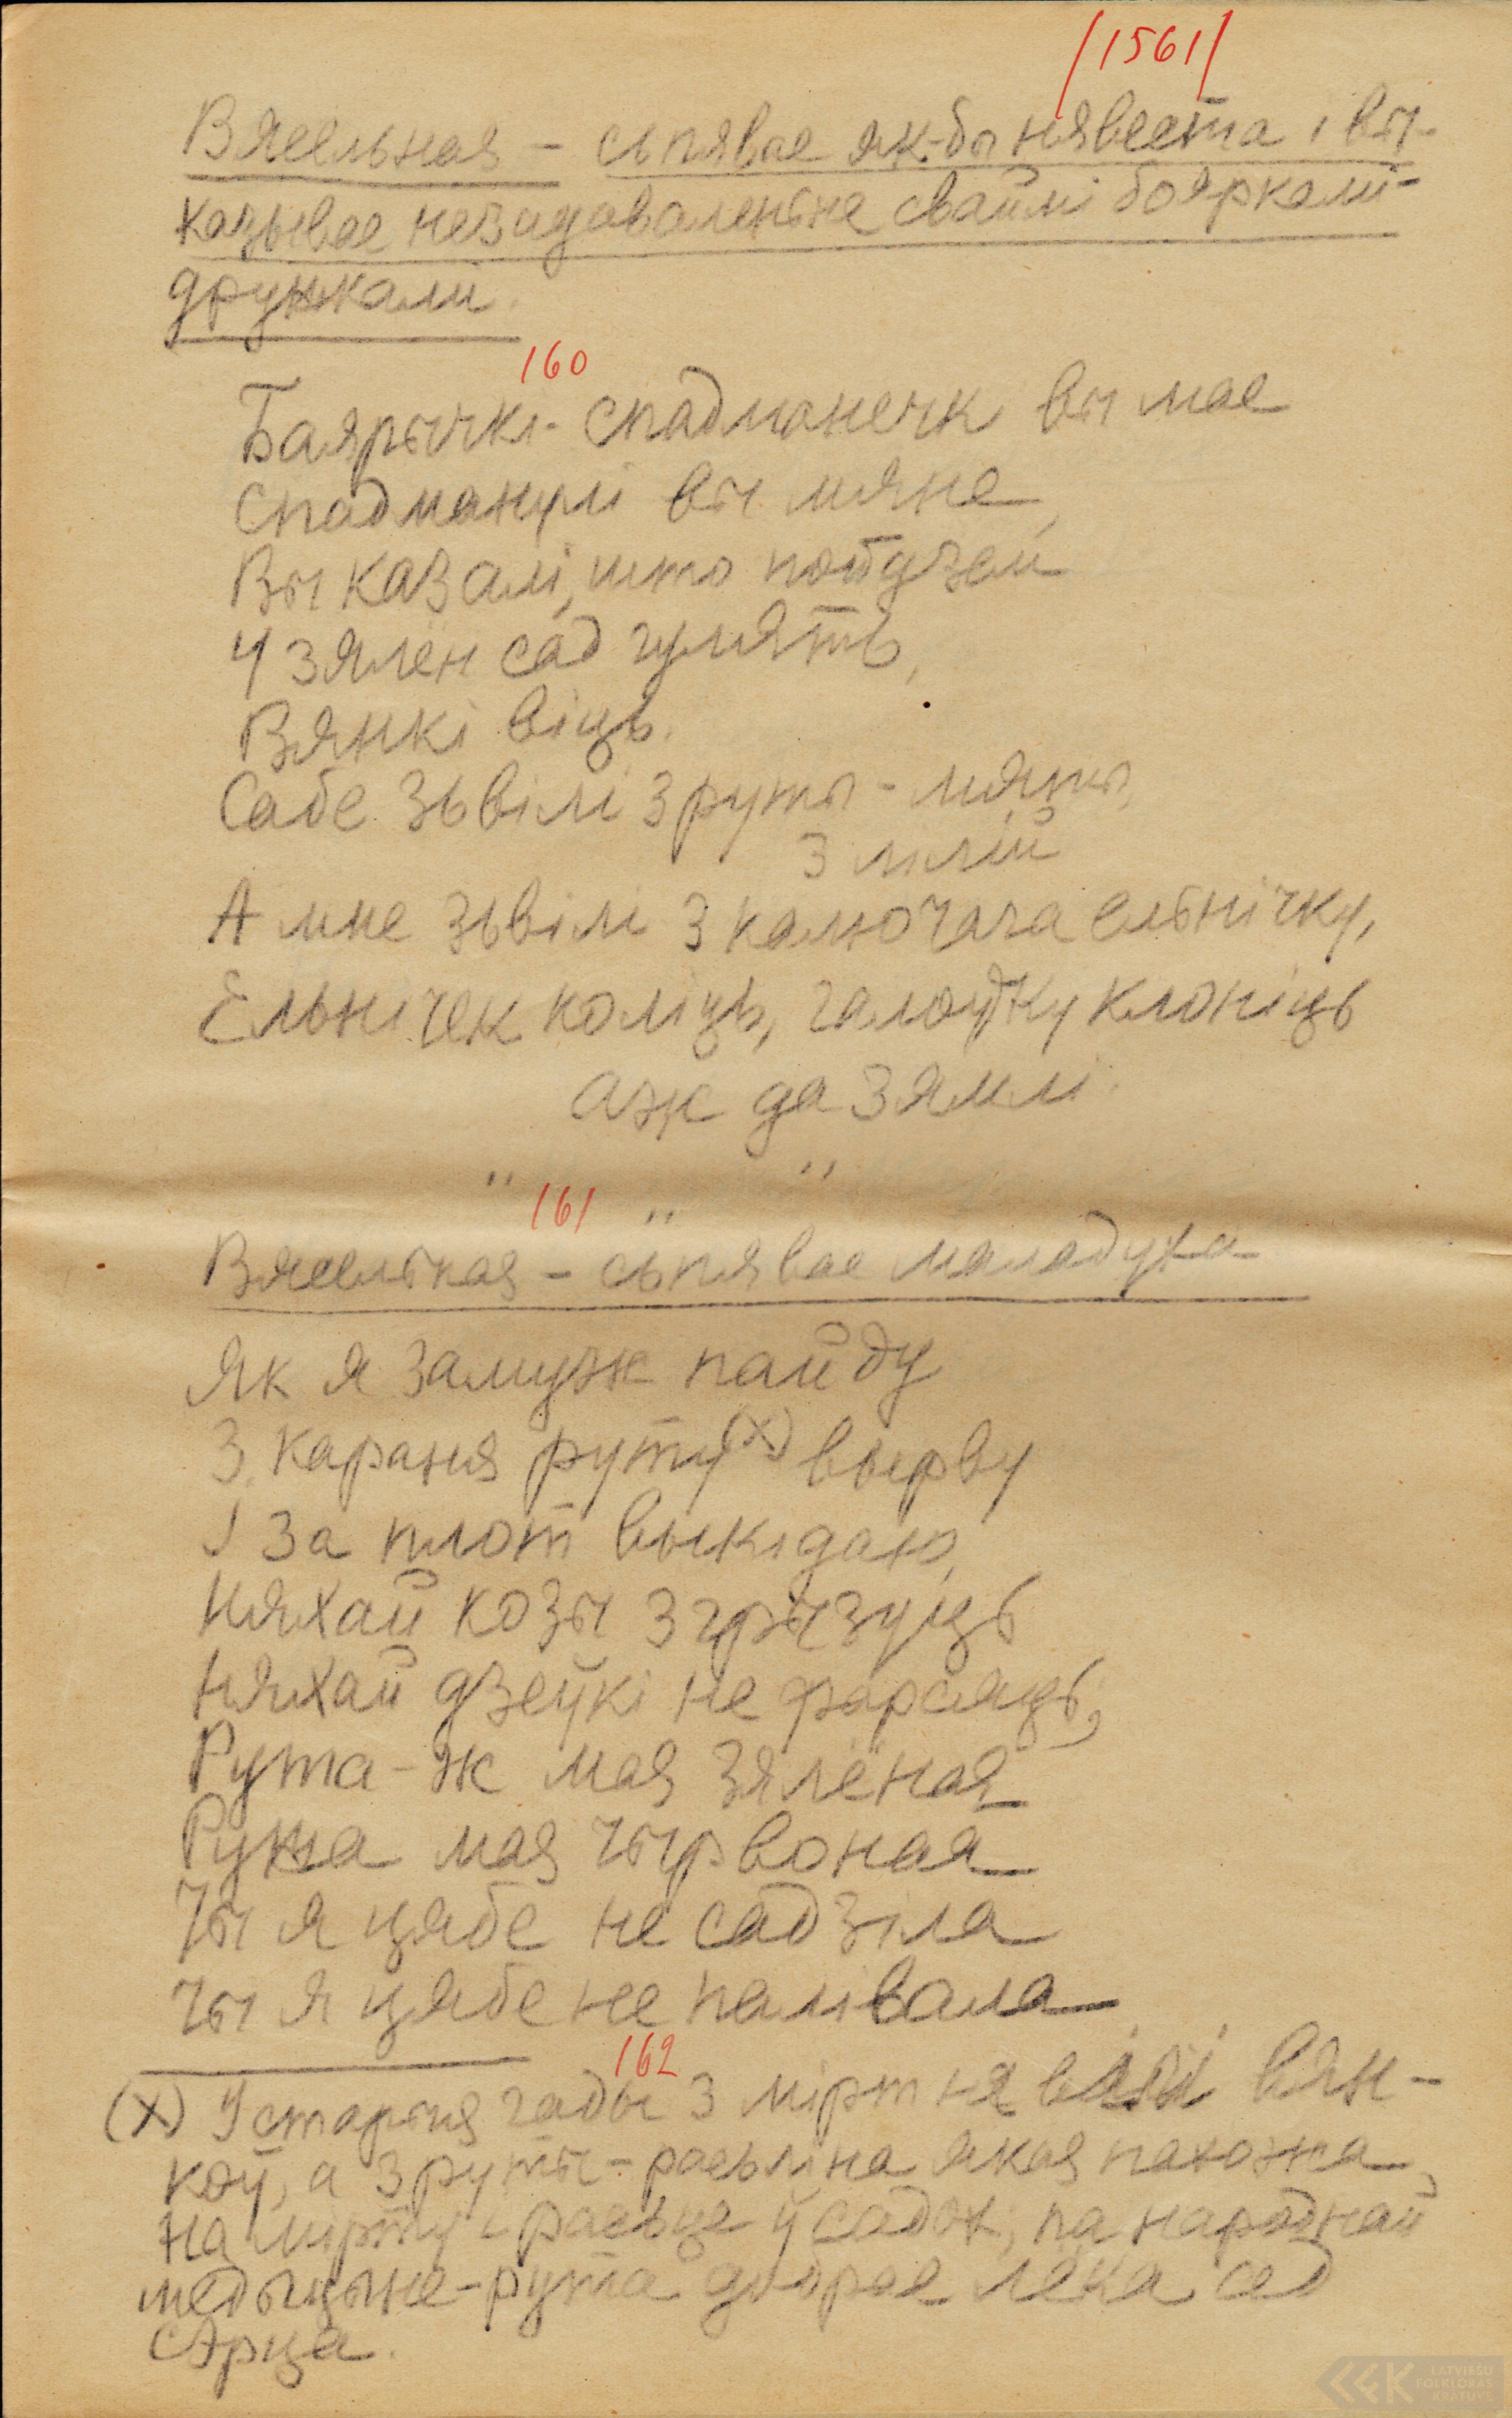 /1561/
Вясельная – сьпявае як-бы нявеста і вы-
казывае незадаваленьне сваімі бояркамі-
дружкамі.
160
Баярычкі-спадманечкі вы мае
Спадманулі вы мяне,
Вы казалі, што пойдзем
У зялён сад гуляць,
Вянкі віць.
Сабе зьвілі з руты-мяты,
з лілій
А мне зьвілі з калючага ельнічку,
Ельнічек коліць, галоўку клоніць
аж да зямлі.
" " "
161
Вясельная – сьпявае маладуха
Як я замуж пайду
З караня руту (х) вырву
І за плот выкідаю,
Няхай козы згрызуць
Няхай дзеўкі не фарсяць,
Рута-ж мая зялёная
Ружа мая чырвоная
Чы я цябе не садзіла
Чы я цябе не палівала
162
(х) У старыя гады з мірт ня вілі вян-
коў, а з руты – расьліна якая пахожа
на мірту і расьце ў садох, па народнай
медыцыне – рута добрае лека ад
сэрца.
LATVIEŠU
FOLKLORAS
KRĀTUVE